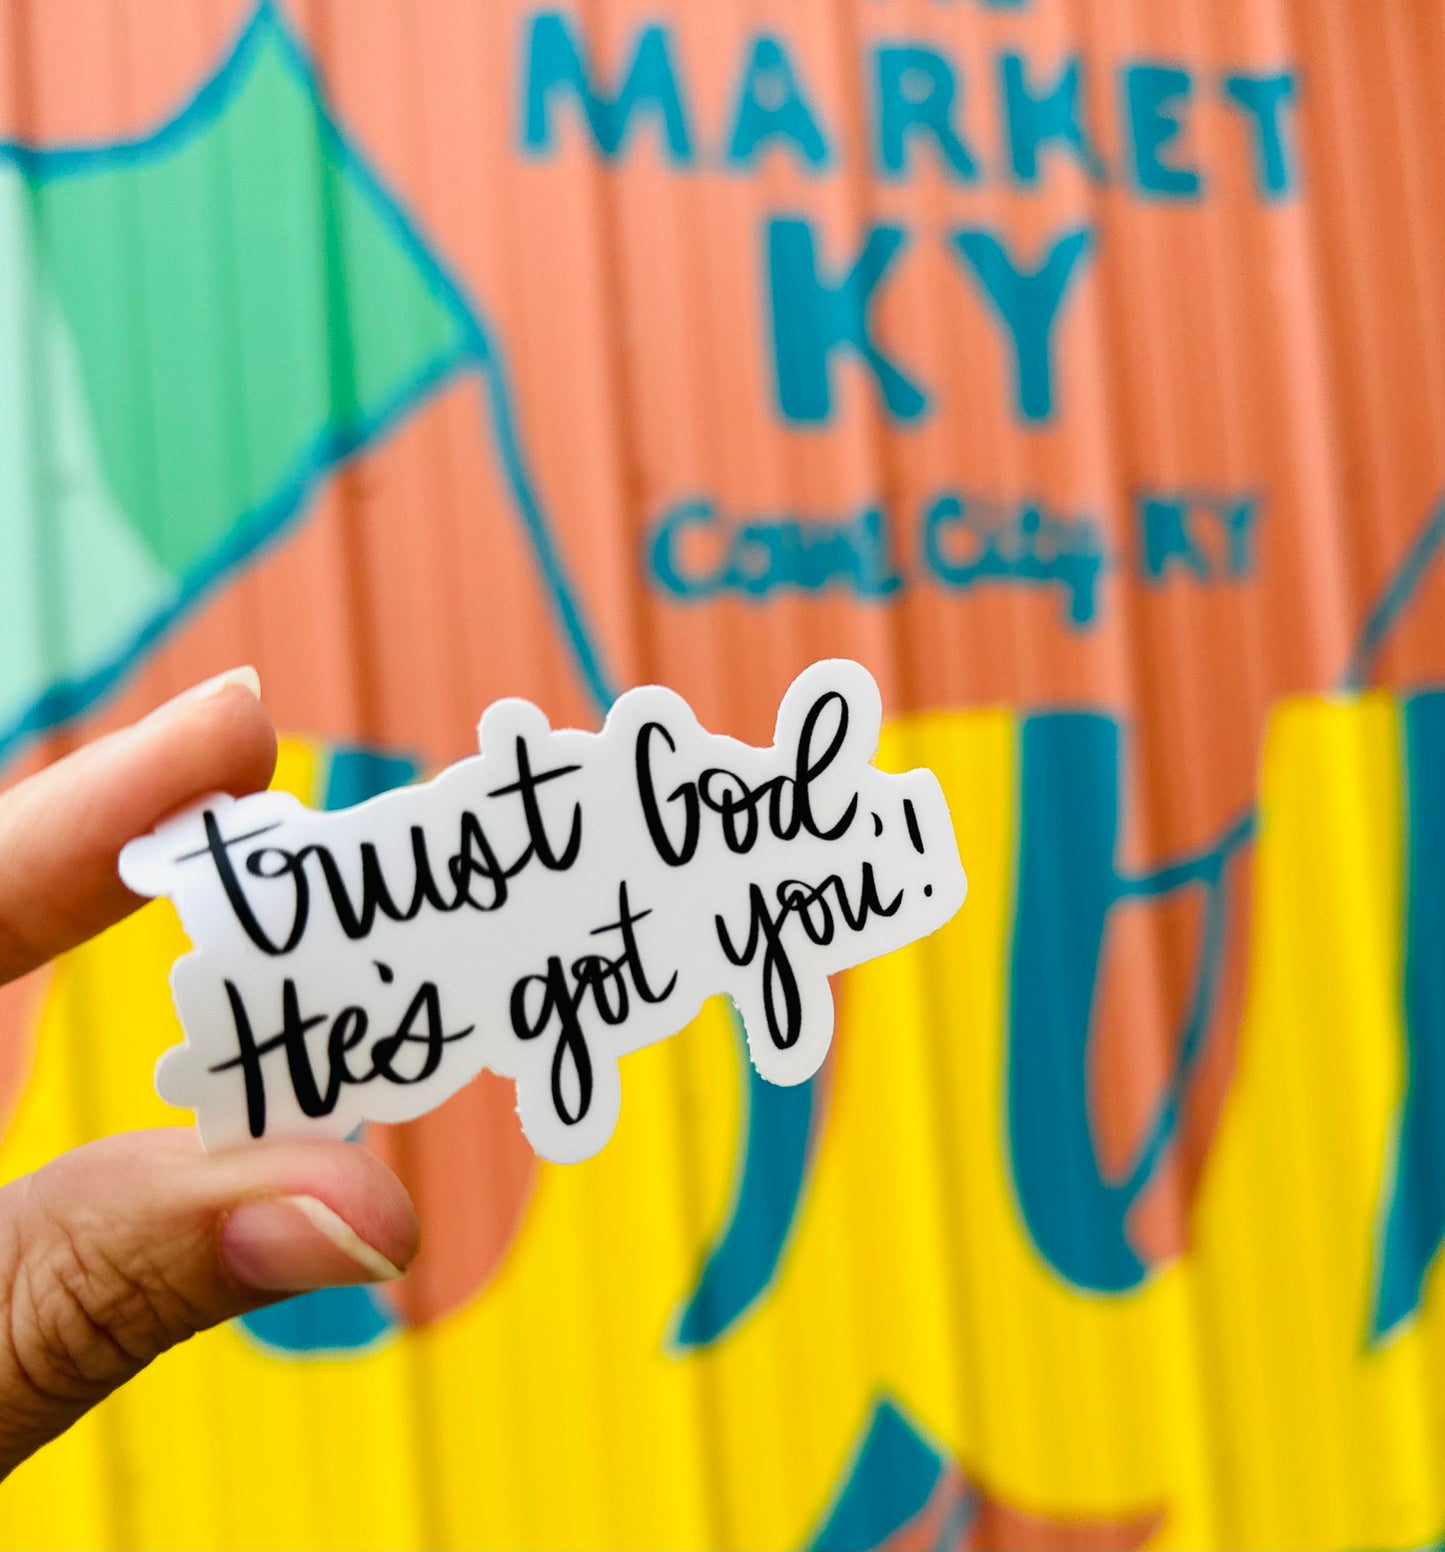 MARKET
KY
Cave City, KY
trust God,
He's got you!